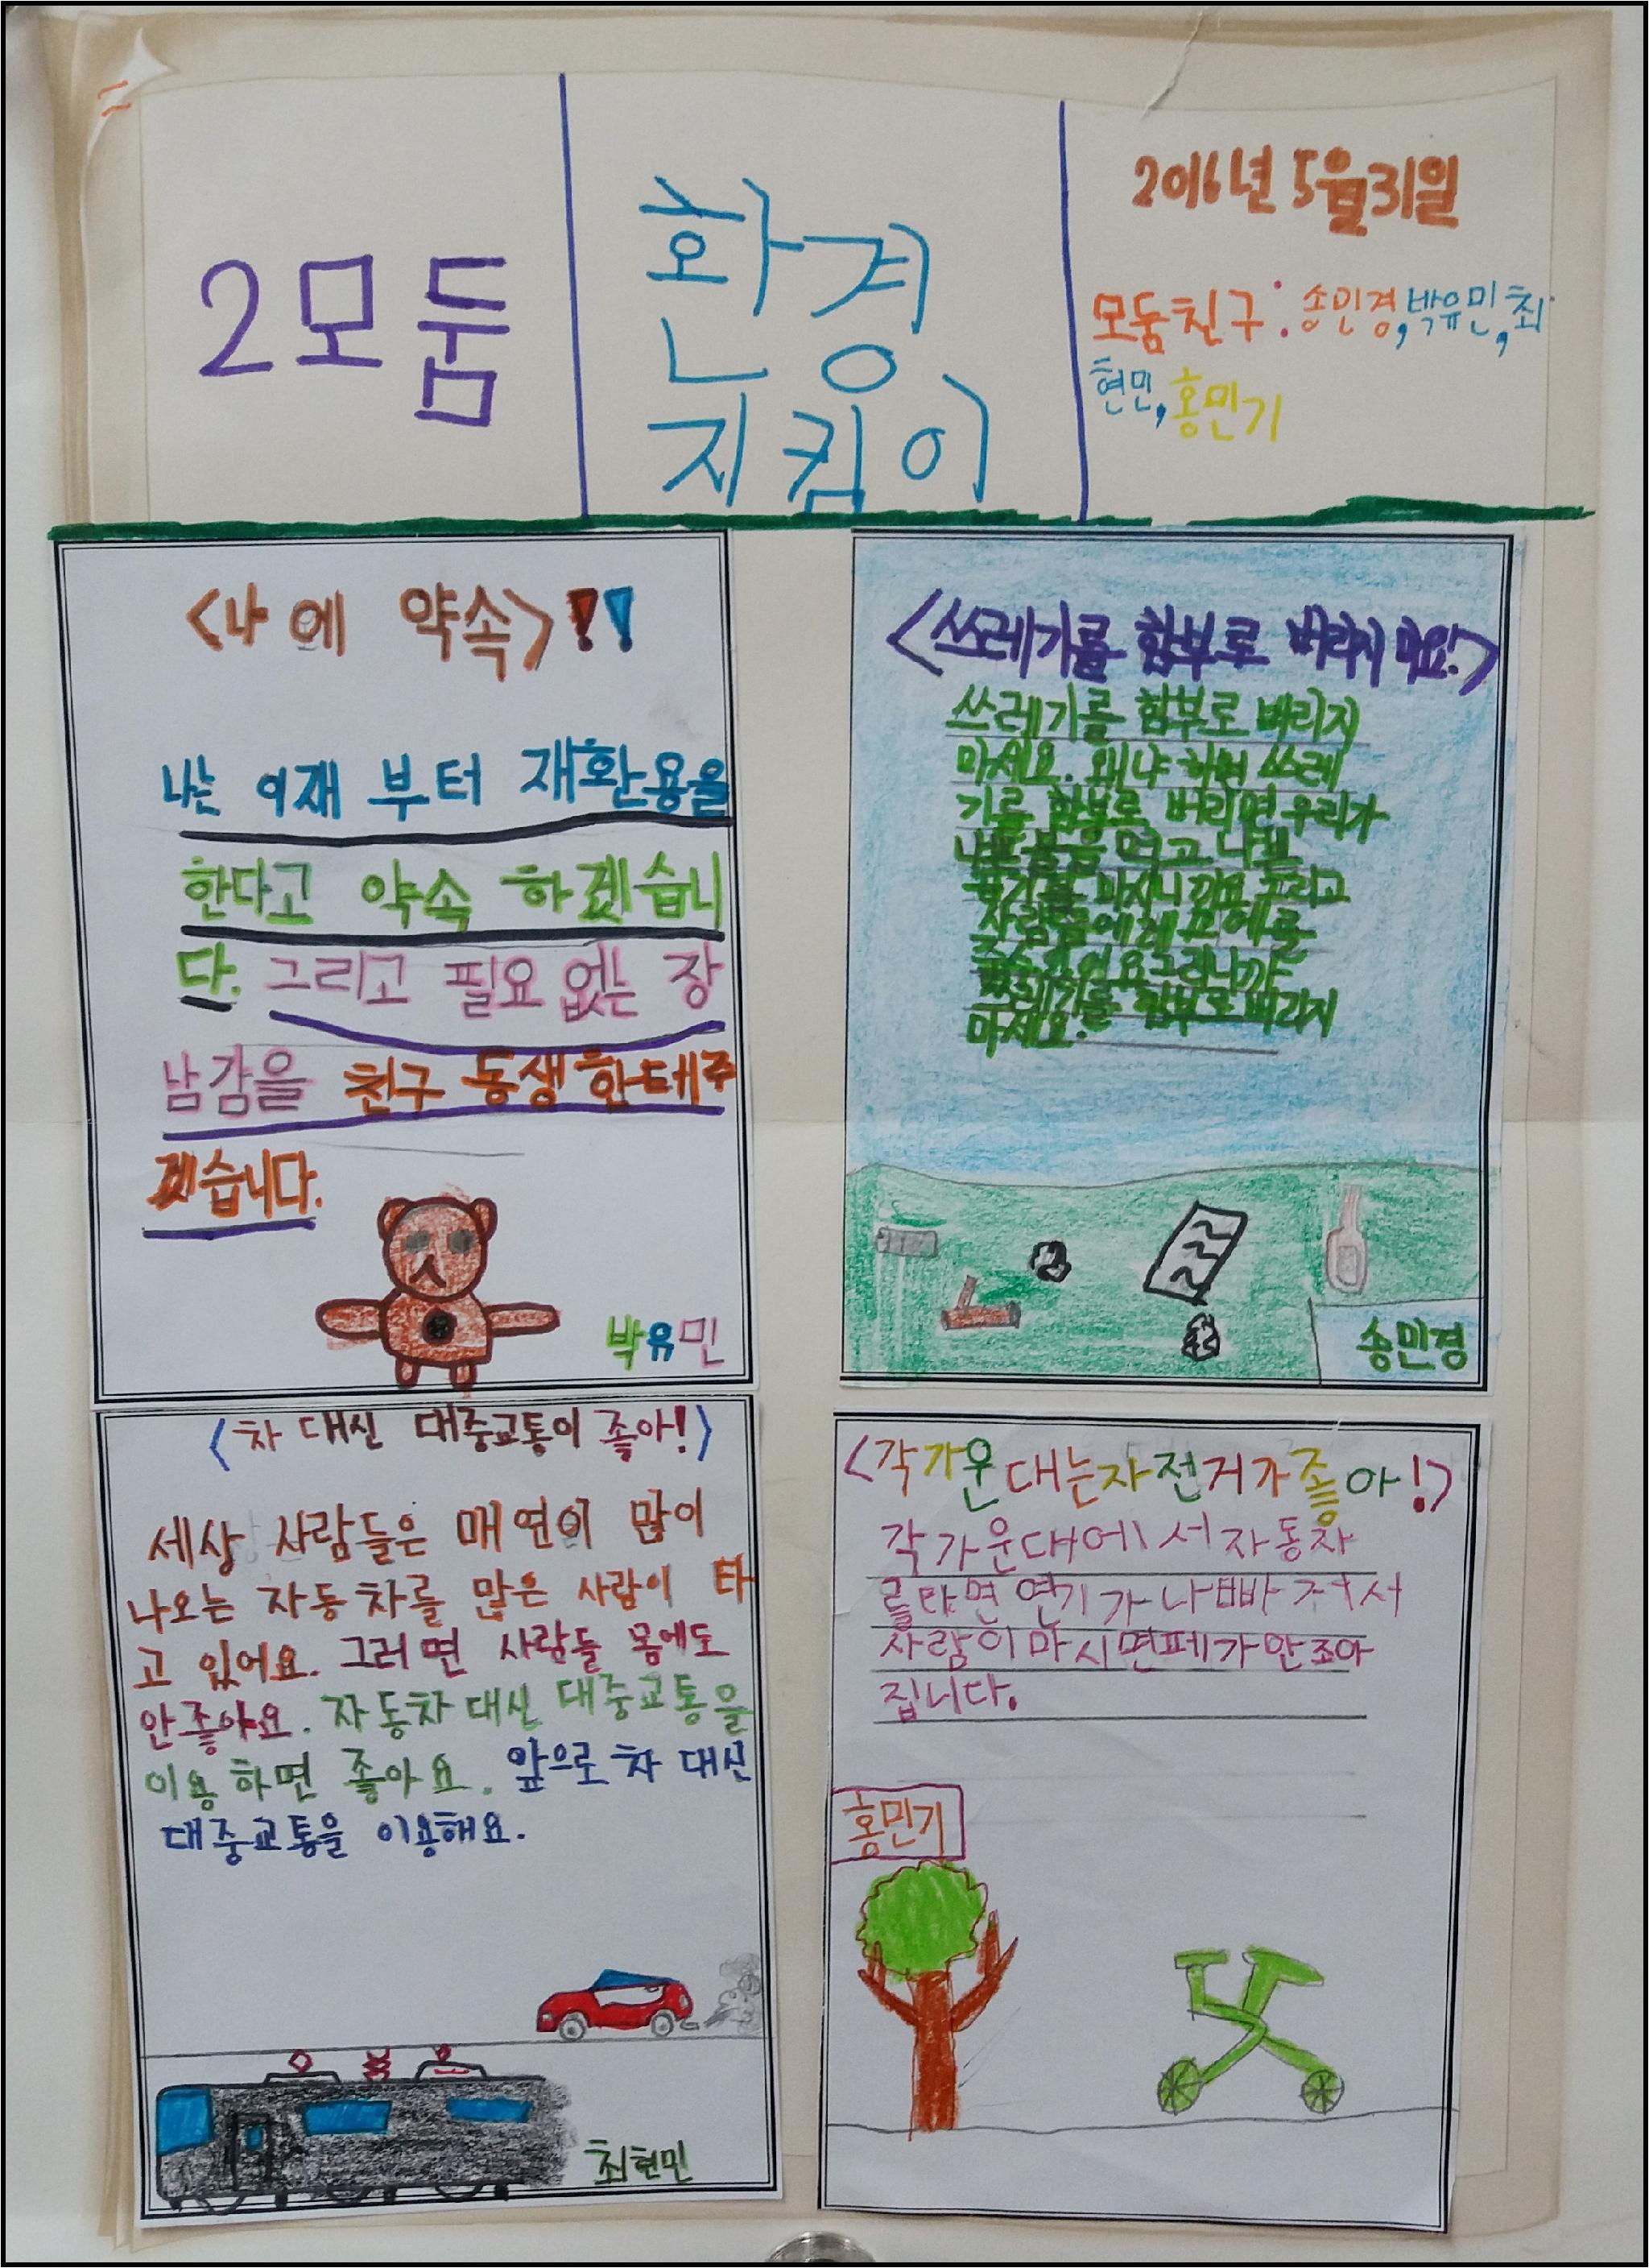 2모둠
환경
지킴이
2016년 5월31일
모둠친구 : 송민경, 박유민, 최
현민, 홍민기
<나에 약속>!!
나는 이재 부터 재환용을
한다고 약속 하겠습니
다. 그리고 필요 없는 장
남감을 친구 동생 한태주
겠습니다.
박유민
<쓰레기를 함부로 버리지 마요!>
쓰레기를 함부로 버리지
마세요. 왜냐 하면 쓰레
기를 함부로 버리면 우리가
나쁜 물을 먹고 나쁜
공기를 마시니 까요 그리고
사람들에게 피해를
요 그러니까
쓰레기를 함부로 버리지
마세요.
송민경
<차 대신 대중교통이 좋아!>
세상 사람들은 매연이 많이
나오는 자동차를 많은 사람이 타
고 있어요. 그러면 사람들 몸에도
안좋아요. 자동차 대신 대중교통을
이용 하면 좋아요. 앞으로 차 대신
대중교통을 이용해요.
최현민
<각가운대는자전거가좋아!>
각가운대에서자동차
를타면 연기가나빠저서
사람이마시면페가안조아
집니다.
홍민기